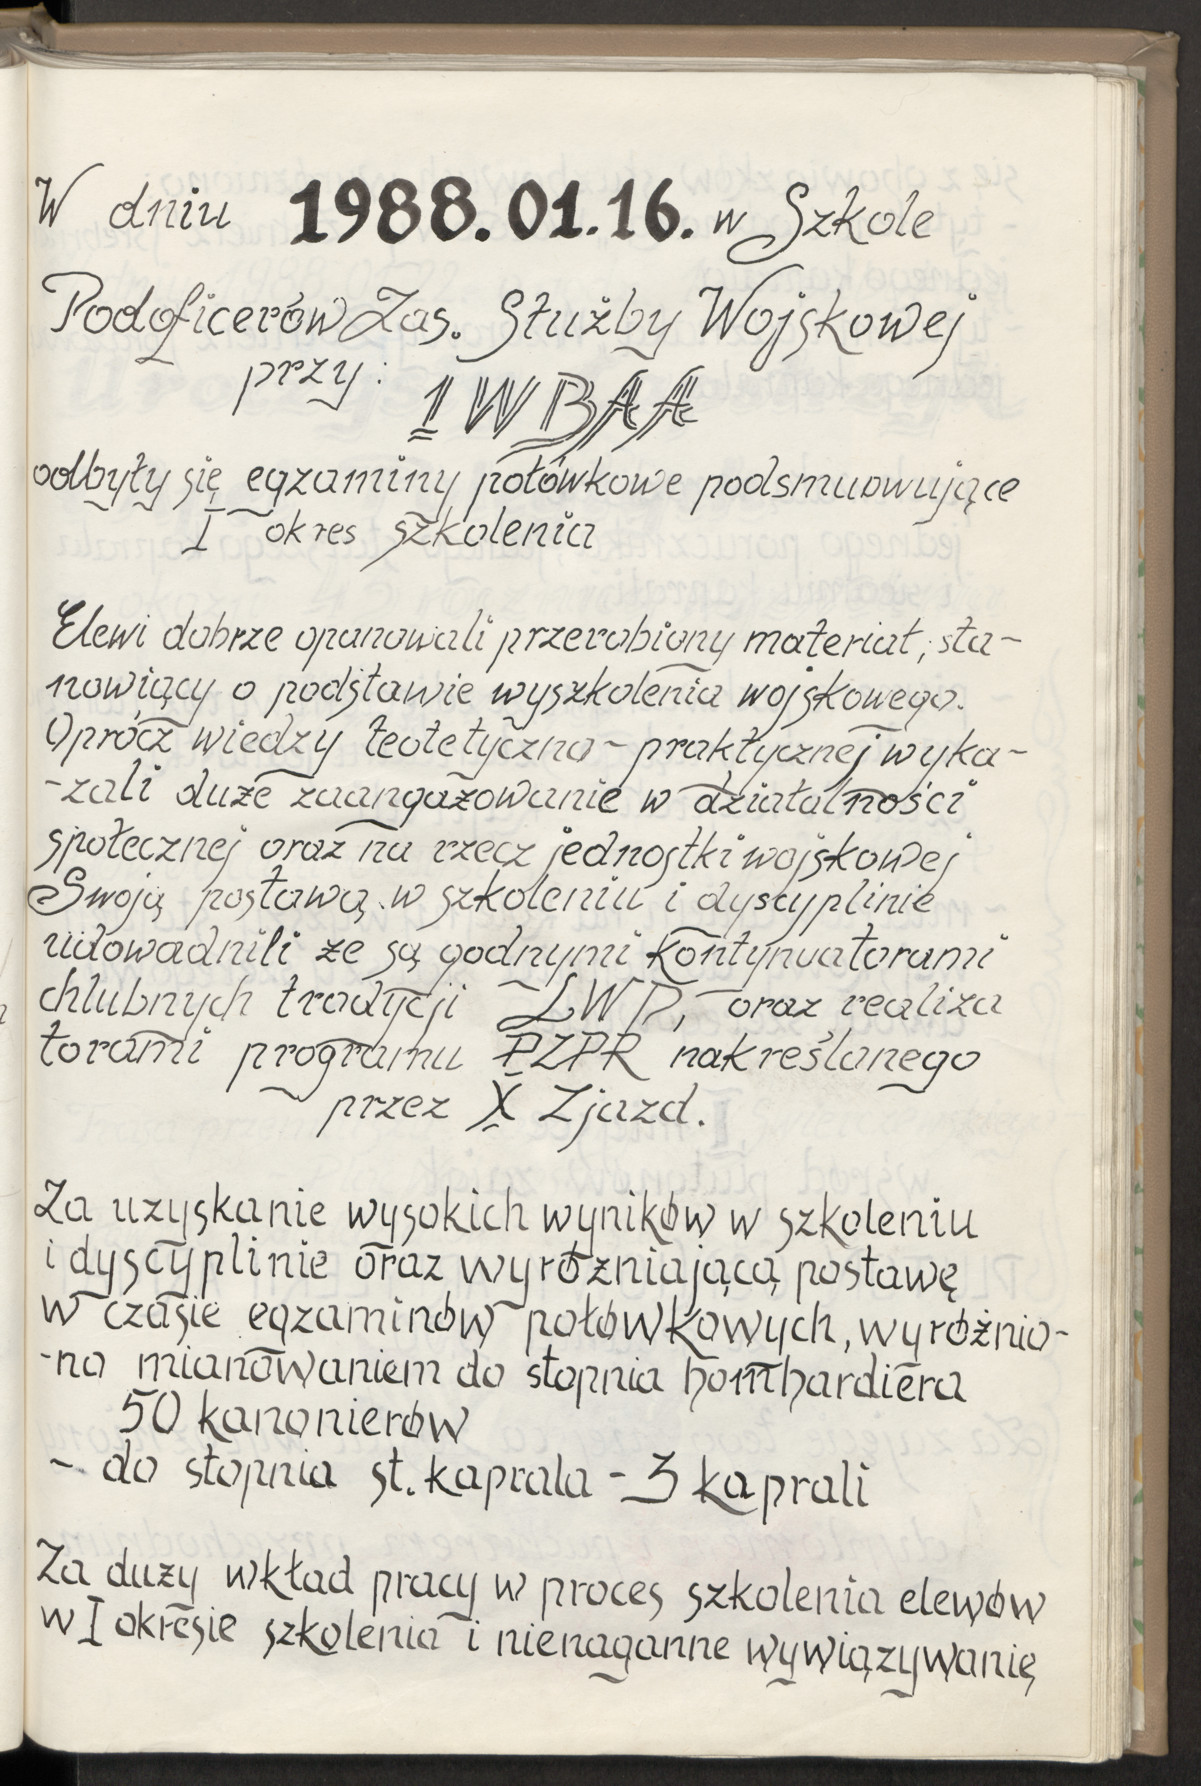 W dniu 1988.01.16. w Szkole
Podoficerów Zas. Służby Wojskowej
przy:
1 WBAA
odbyły się egzaminy połówkowe podsmuowujące
I okres szkolenia
Elewi dobrze opanowali przerobiony materiał, sta-
nowiący o podstawie wyszkolenia wojskowego.
Oprócz wiedzy teotetyczno-praktycznej wyka-
-zali duże zaangażowanie w działalności
społecznej oraz na rzecz jednostki wojskowej
Swoją postawą w szkoleniu i dyscyplinie
udowadnili że są godnymi kontynuatorami
chlubnych tradycji LWP, oraz realiza
torami programu PZPR nakreślonego
przez X Zjazd.
Za uzyskanie wysokich wyników w szkoleniu
i dyscyplinie oraz wyróżniającą postawę
w czasie egzaminów połówkowych, wyróżnio-
-no mianowaniem do stopnia bombardiera
50 kanonierów
- do stopnia st. kaprala - 3 kaprali
Za duży wkład pracy w proces szkolenia elewów
w I okresie szkolenia i nienaganne wywiązywanię